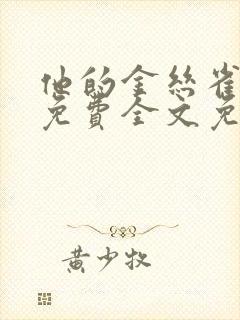 他的金丝雀
免費全文免
黄少牧